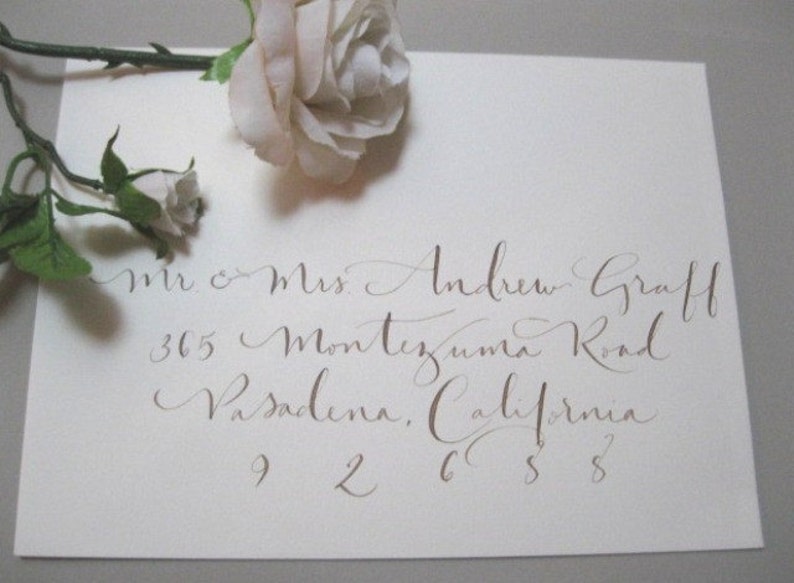 Mr. & Mrs. Andrew Graff
365 Montezuma Road
Pasadena, California
9 2 6 8 8